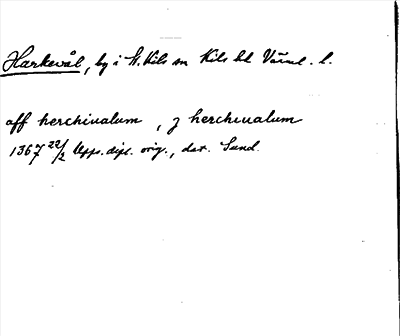 Harkevål, by i St. Kils sn Kils hd Värml. l.
aff herchiualum , j herchiualum
1367 22/2 Upps. dipl. orig., dat. Sund.